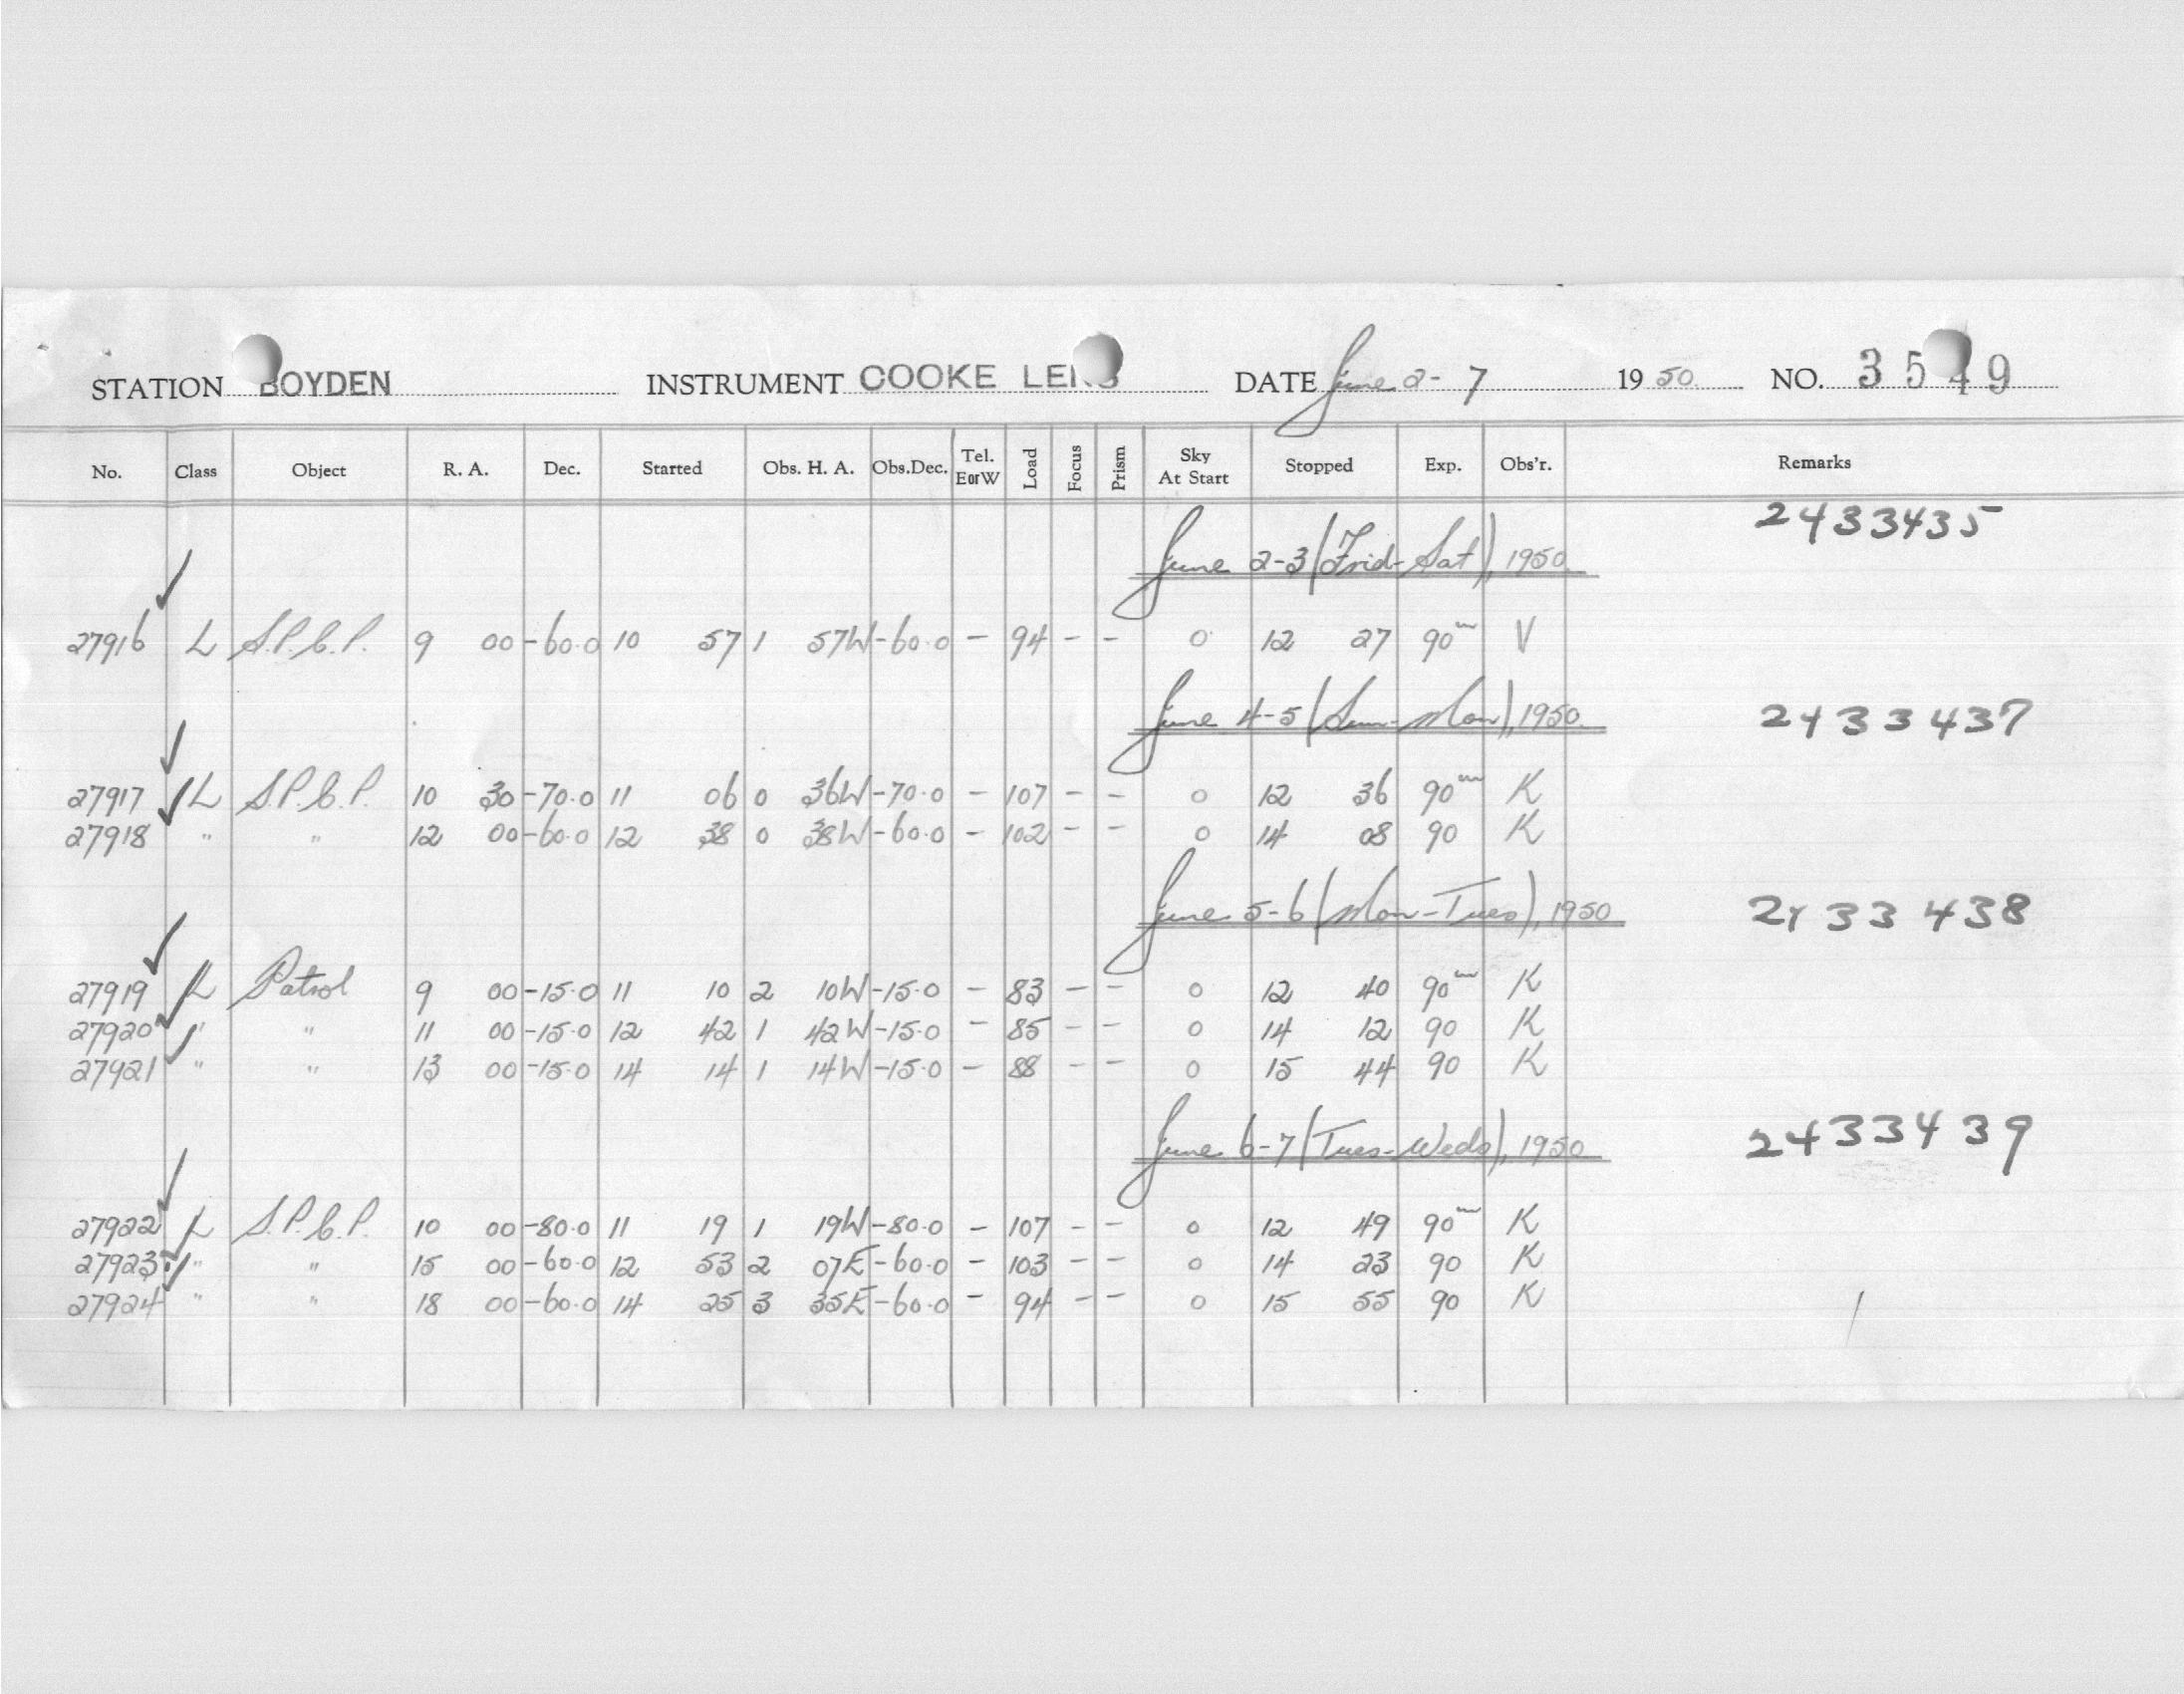 STATION BOYDEN INSTRUMENT COOKE LENS DATE June 2-7 1950. NO. 3549
No. Class Object R. A. Dec. Started Obs. H. A. Obs.Dec. Tel. EorW Load Focus Prism Sky At Start Stopped Exp. Obs'r. Remarks
2433435
June 2-3 (Frid-Sat), 1950.
27916 L S.P.C.P. 9 00 -60.0 10 57 1 57W -60.0 - 94 - - 0 12 27 90m V
June 4-5 (Sun-Mon), 1950. 2433437
27917 L S.P.C.P. 10 30 -70.0 11 06 0 36W -70.0 - 107 - - 0 12 36 90m K
27918 " " 12 00 -60.0 12 38 0 38W -60.0 - 102 - - 0 14 08 90 K
June 5-6 (Mon-Tues), 1950 2433438
27919 L Patrol 9 00 -15.0 11 10 2 10W -15.0 - 83 - - 0 12 40 90m K
27920 " " 11 00 -15.0 12 42 1 42W -15.0 - 85 - - 0 14 12 90 K
27921 " " 13 00 -15.0 14 14 1 14W -15.0 - 88 - - 0 15 44 90 K
June 6-7 (Tues-Weds), 1950 2433439
27922 L S.P.C.P. 10 00 -80.0 11 19 1 19W -80.0 - 107 - - 0 12 49 90m K
27923 " " 15 00 -60.0 12 53 2 07E -60.0 - 103 - - 0 14 23 90 K
27924 " " 18 00 -60.0 14 25 3 35E -60.0 - 94 - - 0 15 55 90 K